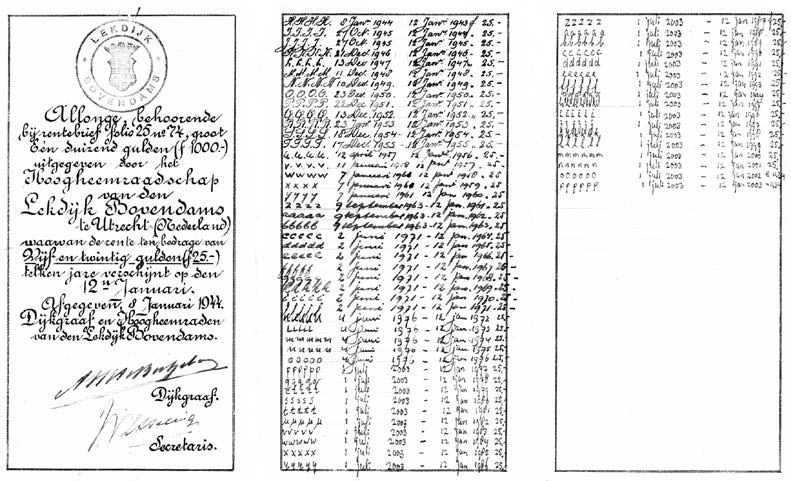 LEKDIJK
BOVENDAMS
Allonge, behoorende
bij rentebrief folio 25 nº 74, groot
Een duizend gulden (f 1000.-)
uitgegeven door het
Hoogheemraadschap
van den
Lekdijk Bovendams
te Utrecht (Nederland)
waarvan de rente ten bedrage van
Vijf en twintig gulden (f 25.-)
telken jare verschijnt op den
12n Januari.
Afgegeven, 8 Januari 1944.
Dijkgraaf en Hoogheemraden
van den Lekdijk Bovendams.
Dijkgraaf.
Secretaris.
H.H.H.H. 8 Jan 1944 12 Jan 1943 f 25.-
27 Oct 1945 12 Jan 1944. 25.-
27 Oct 1945 12 Jan 1945 25.-
12 Jan 1946. 25.-
L.L.L.L. 13 Dec 1947 12 Jan 1947. 25.-
M.M.M.M. 11 Dec 1948 12 Jan 1948. 25.-
N.N.N.N. 10 Dec 1949. 12 Jan 1949. 25.-
O.O.O.O. 23 Dec 1950. 12 Jan 1950. 25.-
P.P.P.P. 22 Dec 1951. 12 Jan 1951. 25.-
Q.Q.Q.Q. 13 Dec. 1952. 12 Jan 1952. 25.-
R.R.R.R. 12 Jan 1953. 25.-
18 Dec. 1954 - 12 Jan 1954. 25.-
17 Dec. 1955 - 12 Jan 1955. 25.-
u.u.u.u. 12 april 1957 12 Jan 1956. 25.-
v.v.v.v. 11 januari 1958 12 Jan 1957. 25.-
wwwww 7 januari 1960 12 jan 1958. 25-
xxxx 7 januari 1960 12 jan 1959. 25-
yyyy 7 januari 1961 12 jan 1960. 25-
zzzz 9 september 1963 - 12 jan. 1961. 25-
aaaaa 9 september 1963 - 12 jan. 1962. 25-
bbbbb 9 september 1963 - 12 jan. 1963. 25-
ccccc 2 juni 1971 - 12 jan. 1964. 25-
ddddd 2 juni 1971 - 12 jan. 1965. 25-
eeeee 2 juni 1971 - 12 jan. 1966. 25-
2 juni 1971 - 12 jan. 1967. 25-
2 juni 1971 - 12 jan. 1968. 25-
2 juni 1971 - 12 jan. 1969. 25-
2 juni 1971 - 12 jan. 1970. 25-
2 juni 1971 - 12 jan. 1971. 25-
4 juni 1976 - 12 jan 1972 25-
4 juni 1976 - 12 jan 1973 25-
4 juni 1976 - 12 jan 1974 25-
nnnnn 4 juni 1976 - 12 jan 1975 25-
ooooo 4 juni 1976 - 12 jan 1976 25-
ppppp 1 juli 2003 - 12 jan 1977 25-
qqqqq 1 juli 2003 - 12 jan 1978 25-
1 juli 2003 - 12 jan 1979 25-
sssss 1 juli 2003 - 12 jan 1980 25-
ttttt 1 juli 2003 - 12 jan 1981 25-
1 juli 2003 - 12 jan 1982 25-
vvvvv 1 juli 2003 - 12 jan 1983 25-
wwwww 1 juli 2003 - 12 jan 1984 25-
xxxxx 1 juli 2003 - 12 jan 1985 25-
yyyyy 1 juli 2003 - 12 jan 1986 25-
zzzzz 1 juli 2003 - 12 jan 1987 25-
1 juli 2003 - 12 jan 25-
bbbbb 1 juli 2003 - 12 jan 25-
cccccc 1 juli 2003 - 12 jan 25-
dddddd 1 juli 2003 - 12 jan 25-
eeeeee 1 juli 2003 - 12 jan 25-
1 juli 2003 - 12 jan 25-
1 juli 2003 - 12 jan 25-
1 juli 2003 - 12 jan 25-
1 juli 2003 - 12 jan 25-
1 juli 2003 - 12 jan 25-
1 juli 2003 - 12 jan 25-
1 juli 2003 - 12 jan 25-
1 juli 2003 - 12 jan 2000 25-
nnnnnn 1 juli 2003 - 12 jan 2001 25-
oooooo 1 juli 2003 - 12 jan 2002
pppppp 1 juli 2003 - 12 jan 2003